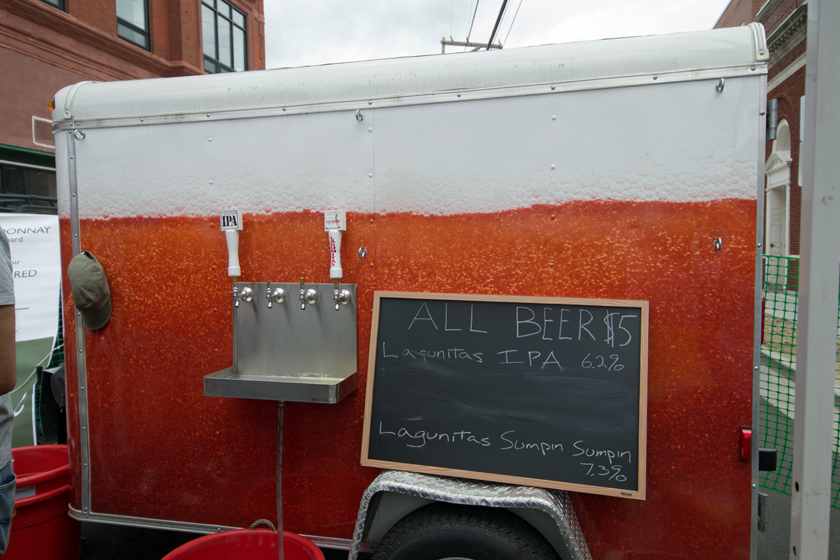 DONNAY
ard
ir
RED
IPA
ALL BEER $5
Lagunitas IPA 6.2%
Lagunitas Sumpin Sumpin
7.3%